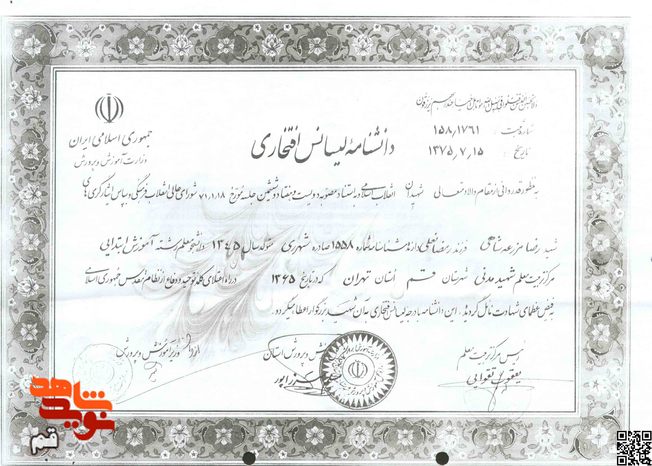 جمهوری اسلامی ایران
وزارت آموزش و پرورش
شماره ثبت ۱۵۸/۱۷۶۱
تاریخ ۱۳۷۵,۷,۱۵
دانشنامه لیسانس افتخاری
به منظور قدردانی از مقام والا و متعالی شهیدان انقلاب اسلامی و به استناد مصوبه دویست و هفتاد و ششمین جلسه مورخ ۷۱,۱,۱۸ شورای عالی انقلاب فرهنگی و بپاس ایثارگری های
شهید رضا مزرعه شاهی فرزند رمضانعلی دارنده شناسنامه شماره ۱۵۵۸ صادره شهرری متولد سال ۱۳۴۵ دانشجو معلم رشته آموزش ابتدایی
مرکز تربیت معلم شهید مدنی شهرستان قم استان تهران که در تاریخ ۱۳۶۵ در راه اعتلای کلمه توحید و دفاع از نظام مقدس جمهوری اسلامی
به فیض عظمای شهادت نائل گردیده، این دانشنامه با درجه لیسانس افتخاری به آن شهید بزرگوار اعطا میگردد.
رئیس مرکز تربیت معلم
یعقوب تقوایی
آموزش و پرورش استان
وزیر آموزش و پرورش
نوید شاهد
قم